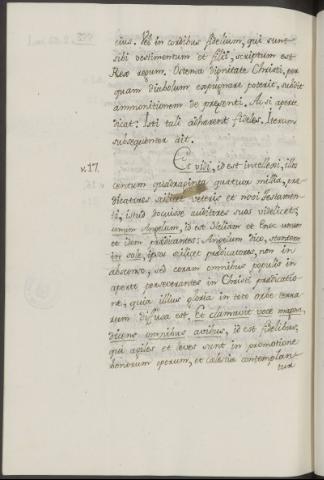 eius. Vel in cordibus fidelium, qui sunt
sibi vestimentum et filii, scriptum est
Rex regum. Ostensa dignitate Christi, per
quam diabolum expugnare poterit, subdit
ammonitionem de praesenti. Ac si aperte
dicat: Isti tali adhaerent fideles. Iterum
subsequenter ait.
v. 17. Et vidi, id est intellexi, illos
centum quadraginta quatuor millia, prae
dicatores scilicet veteris et novi Testamen
ti, istud docuisse auditores suos videlicet,
unum Angelum, id est Heliam et Enoc unum
et idem praedicantes: Angelum dico, stantem
in sole, ipsos scilicet praedicatores, non in
absconso, sed coram omnibus populis in
aperte perseverantes in Christi praedicatio
ne, quia illius gloria in toto orbe terra
rum diffusa est, Et clamavit voce magna,
dicens omnibus avibus, id est fidelibus,
qui agiles et leves sunt in promotione
bonorum operum, et caelestia contemplan
tur